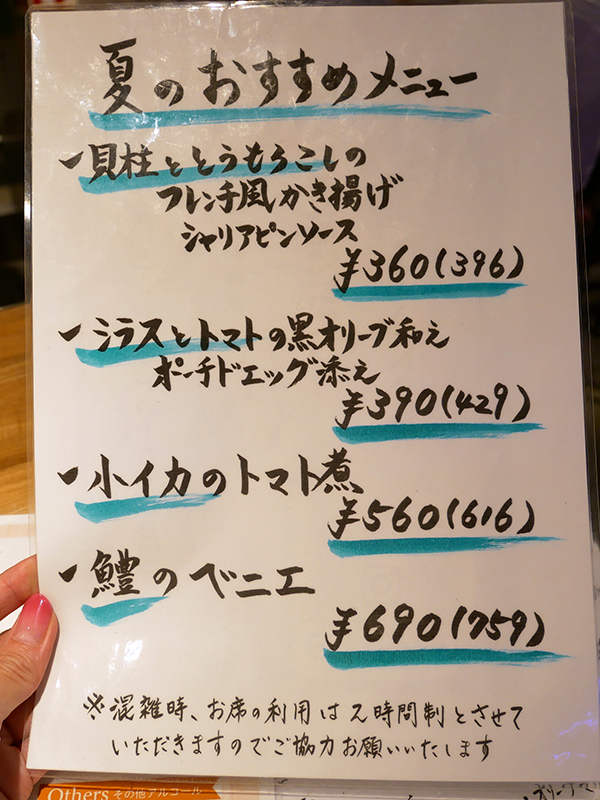 夏のおすすめメニュー
・貝柱ととうもろこしの
フレンチ風かき揚げ
シャリアピンソース
¥360(396)
・シラスとトマトの黒オリーブ和え
ポーチドエッグ添え
¥390(429)
・小イカのトマト煮
¥560(616)
・鱧のベニエ
¥690(759)
※混雑時、お席の利用は2時間制とさせて
いただきますのでご協力お願いいたします
Others その他アルコール